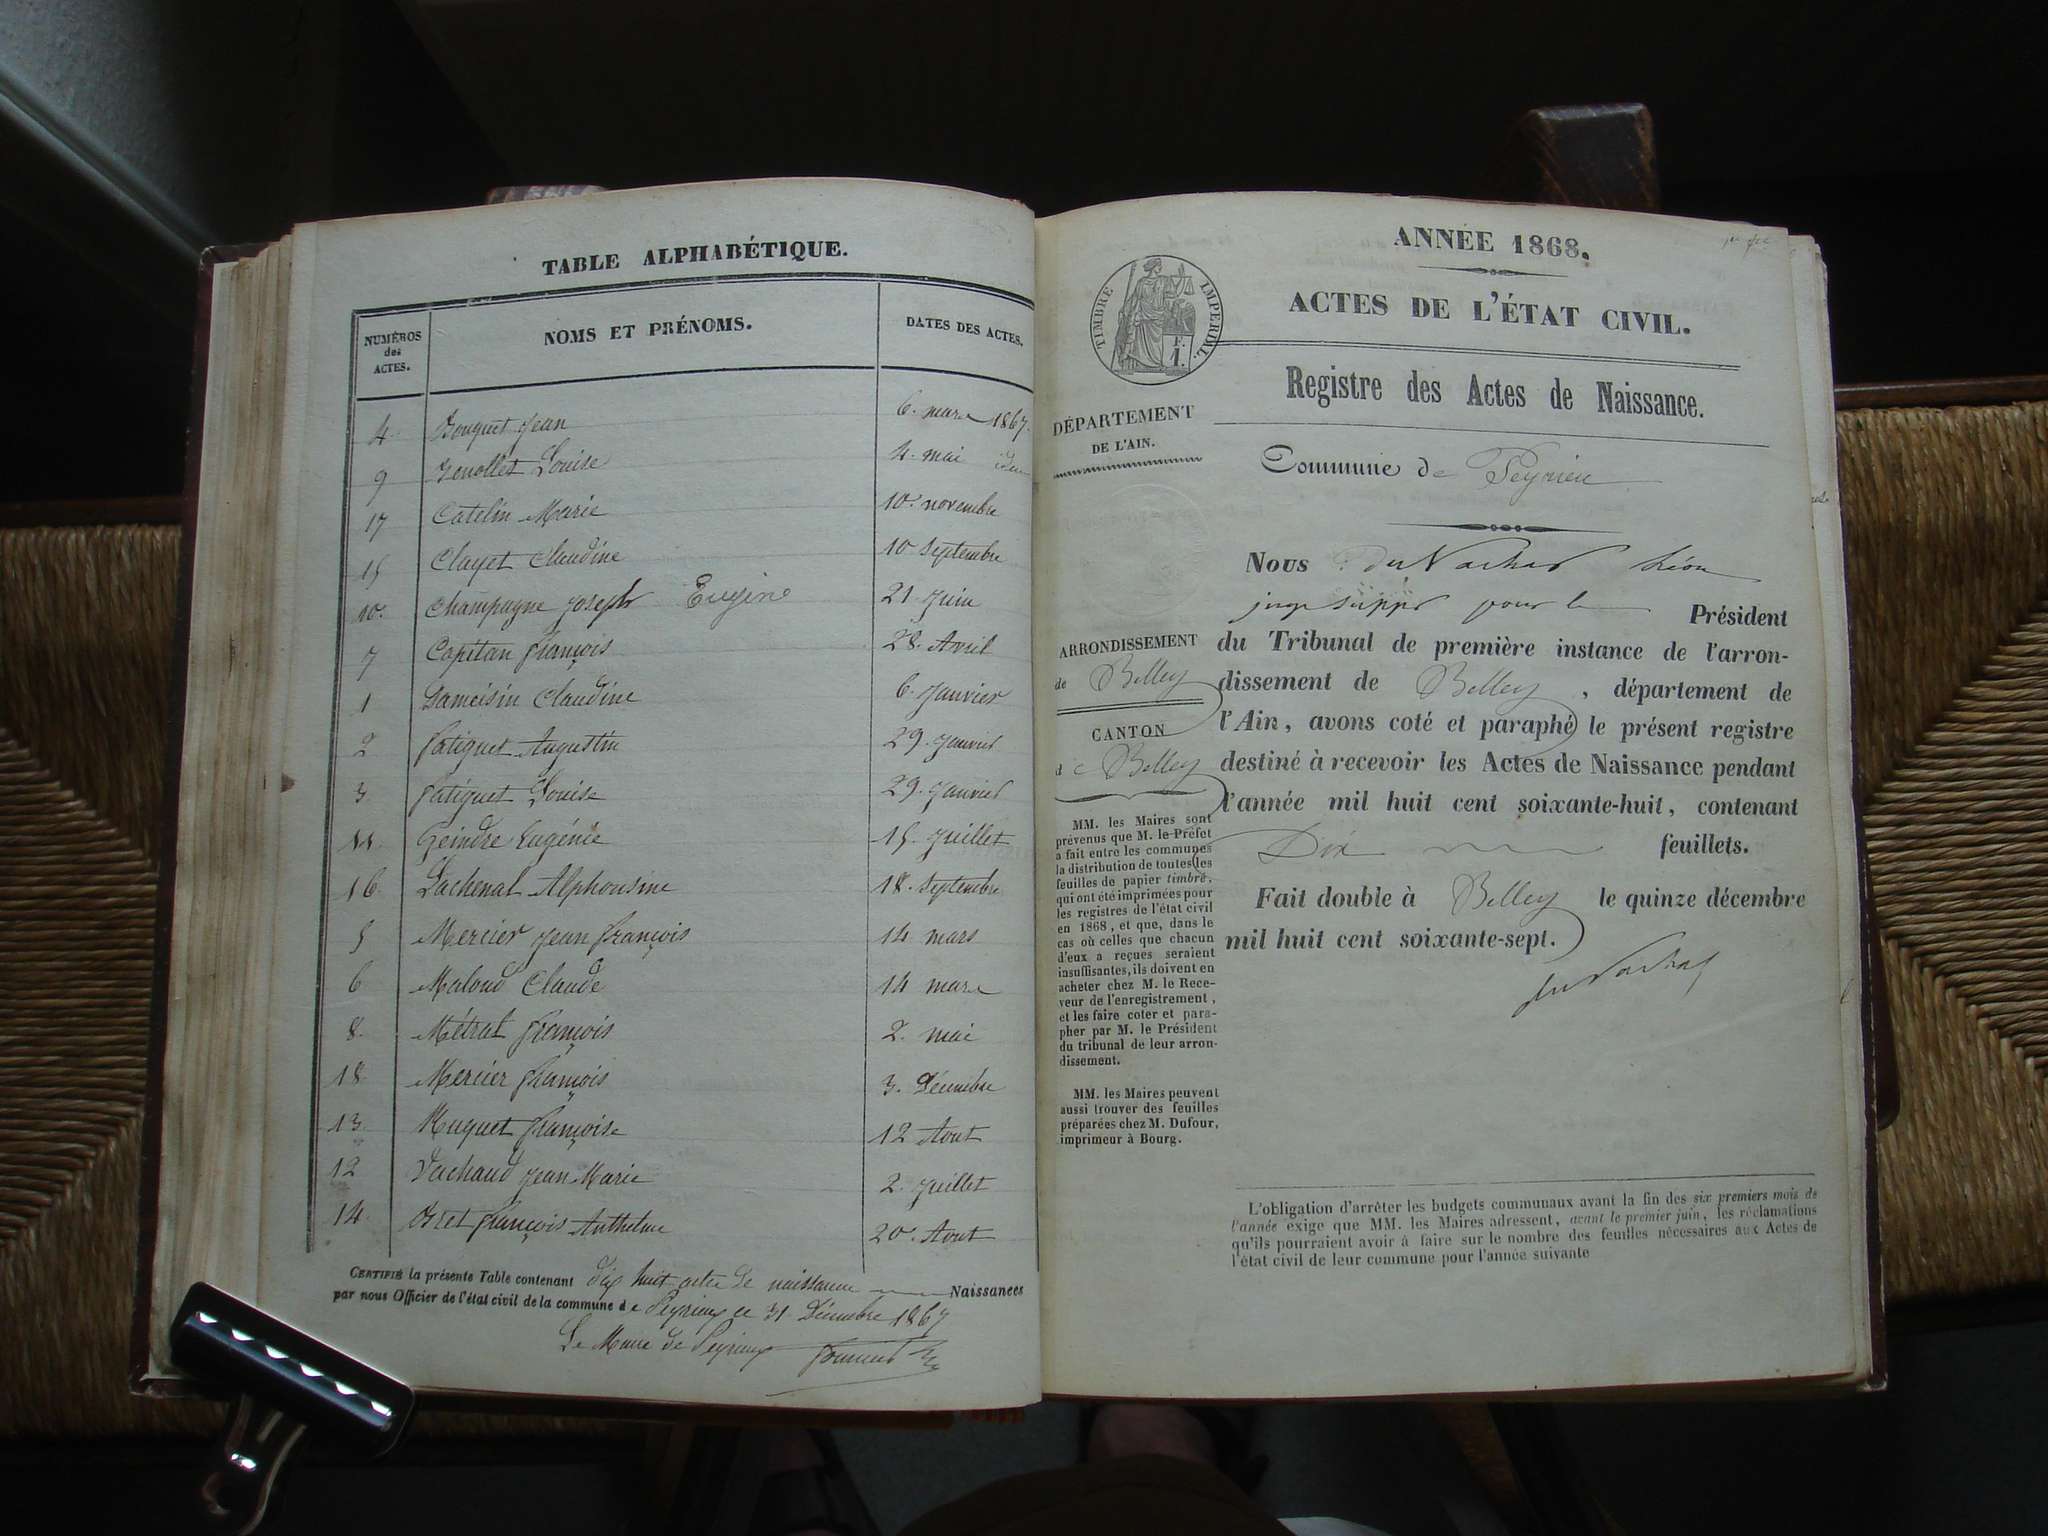 TABLE ALPHABÉTIQUE.
NUMÉROS des ACTES. NOMS ET PRÉNOMS. DATES DES ACTES.
4 Bouquet Jean 6. mars 1867.
9 Louise 4. mai
17 Catelin Marie 10. novembre
15 Clayet Claudine 10 Septembre
10. Champagne Joseph Eugène 21. Juin
7 Capitan François 28. Avril
1 Dameisin Claudine 6. Janvier
2 Fatiguet Augustin 29. Janvier
3. Fatiguet Louise 29. Janvier
11. Geindre Eugénie 15. Juillet
16. Lachenal Alphonsine 18. Septembre
5 Mercier Jean François 14 mars
6 Maloud Claude 14 mars
8. Métral François 2. mai
18 Mercier François 3. Décembre
13. Muguet Françoise 12 Aout
12 Vachaud Jean-Marie 2. Juillet
14. François Anthelme 20. Aout
CERTIFIÉ la présente Table contenant dix huit actes de naissance Naissances
par nous Officier de l'état civil de la commune de Peyrieux ce 31 Décembre 1867
Le Maire de Peyrieux
ANNÉE 1868.
TIMBRE IMPÉRIAL.
F. 1.
ACTES DE L'ÉTAT CIVIL.
Registre des Actes de Naissance.
DÉPARTEMENT
DE L'AIN.
Commune de Peyrieu
ARRONDISSEMENT
de Belley
CANTON
de Belley
MM. les Maires sont
prévenus que M. le Préfet
a fait entre les communes
la distribution de toutes les
feuilles de papier timbré,
qui ont été imprimées pour
les registres de l'état civil
en 1868, et que, dans le
cas où celles que chacun
d'eux a reçues seraient
insuffisantes, ils doivent en
acheter chez M. le Rece-
veur de l'enregistrement,
et les faire coter et para-
pher par M. le Président
du tribunal de leur arron-
dissement.
MM. les Maires peuvent
aussi trouver des feuilles
préparées chez M. Dufour,
imprimeur à Bourg.
Nous du Vachat Léon
juge suppt pour le Président
du Tribunal de première instance de l'arron-
dissement de Belley, département de
l'Ain, avons coté et paraphé le présent registre
destiné à recevoir les Actes de Naissance pendant
l'année mil huit cent soixante-huit, contenant
Dix feuillets.
Fait double à Belley le quinze décembre
mil huit cent soixante-sept.
du Vachat
L'obligation d'arrêter les budgets communaux avant la fin des six premiers mois de
l'année exige que MM. les Maires adressent, avant le premier juin, les réclamations
qu'ils pourraient avoir à faire sur le nombre des feuilles nécessaires aux Actes de
l'état civil de leur commune pour l'année suivante